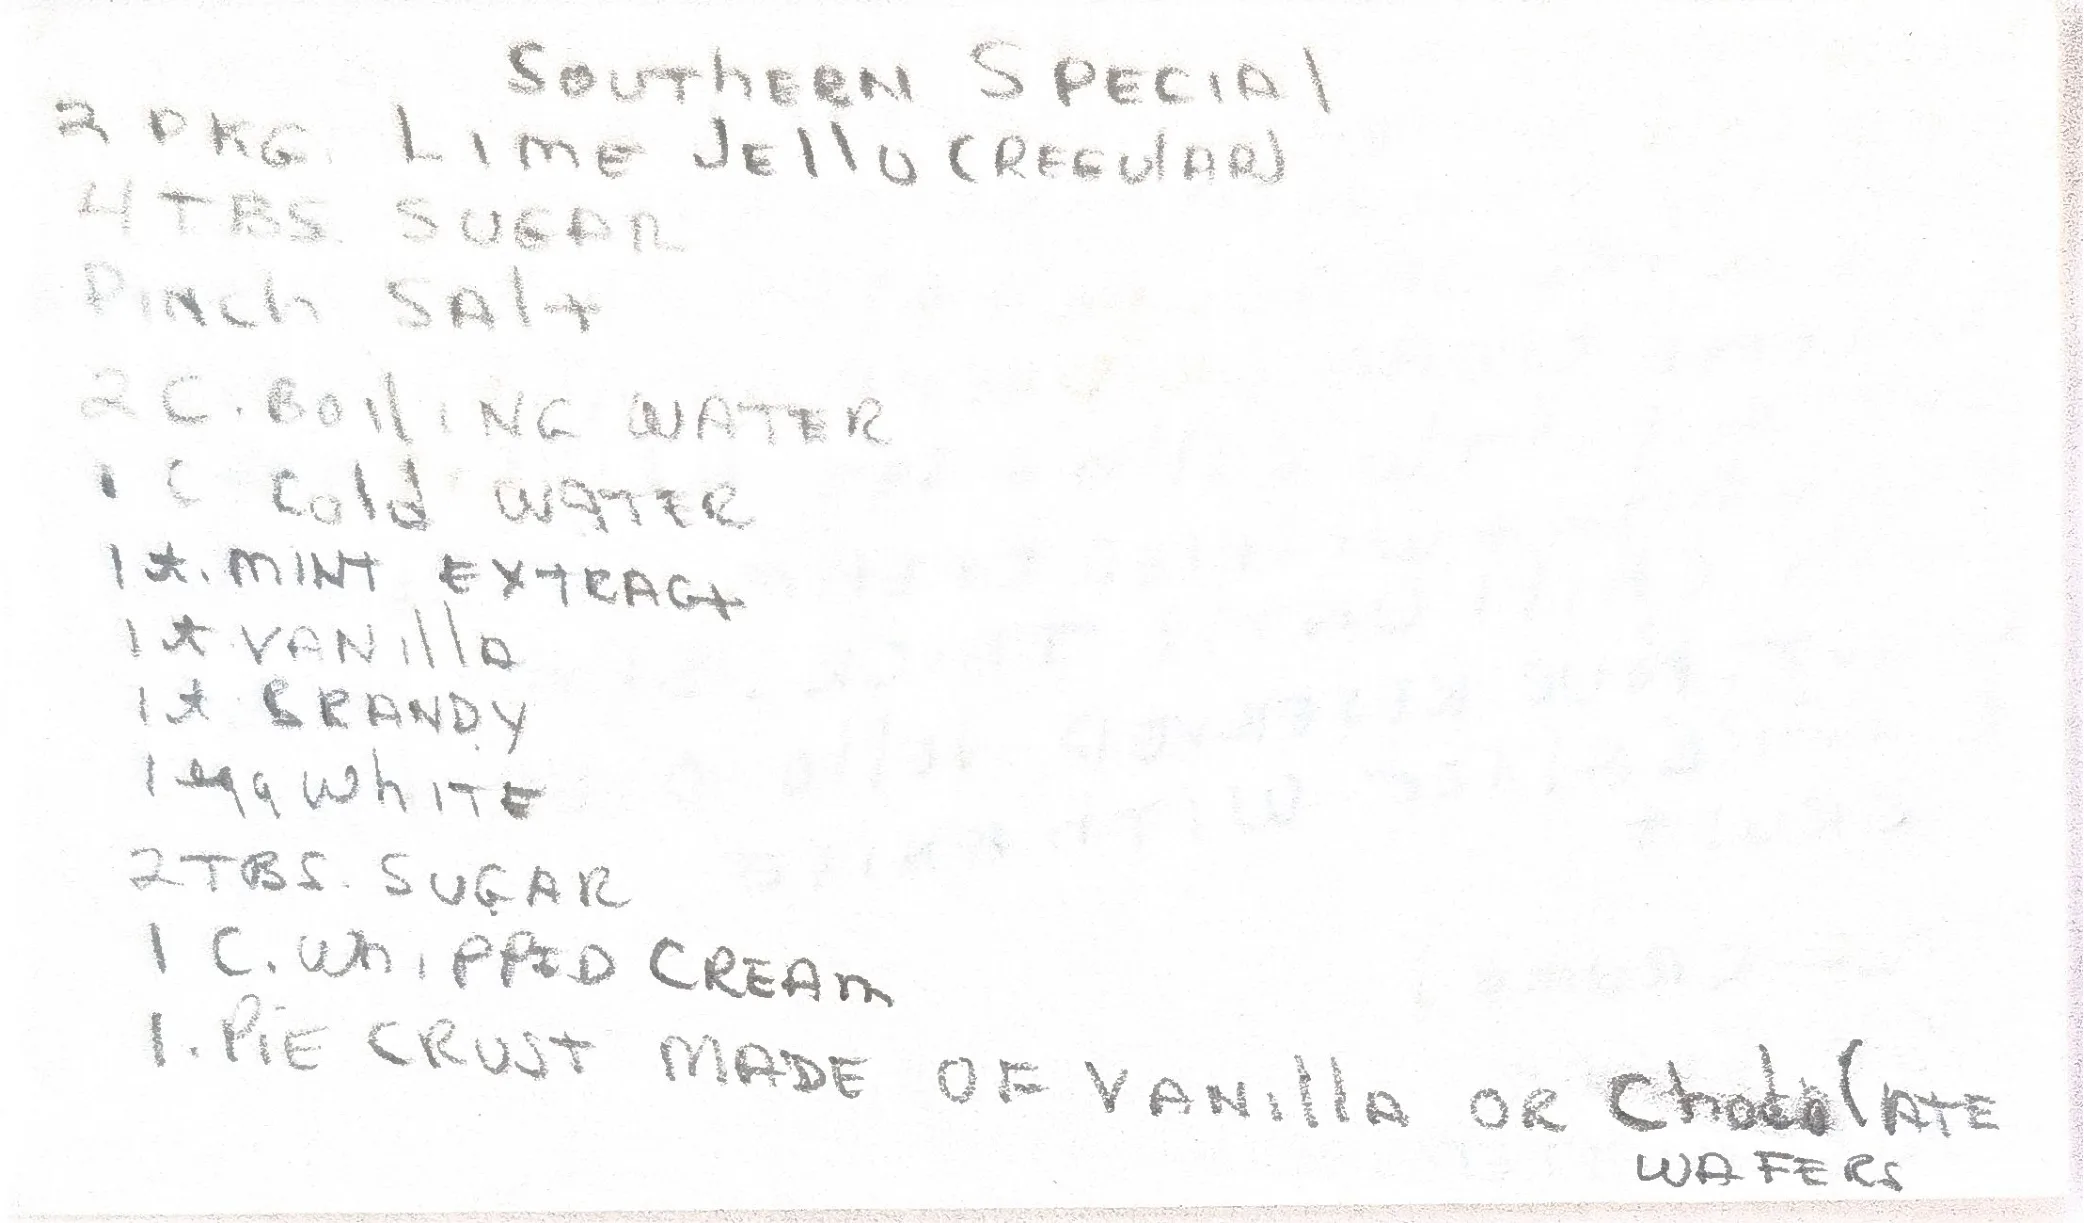 Southern Special
2 PKG. Lime Jello (Regular)
4 TBS. Sugar
Pinch Salt
2 C. Boiling Water
1 C Cold Water
1 t. Mint Extract
1 t. Vanilla
1 t. Brandy
1 egg White
2 TBS. Sugar
1 C. Whipped Cream
1. Pie Crust Made of Vanilla or Chocolate
Wafers